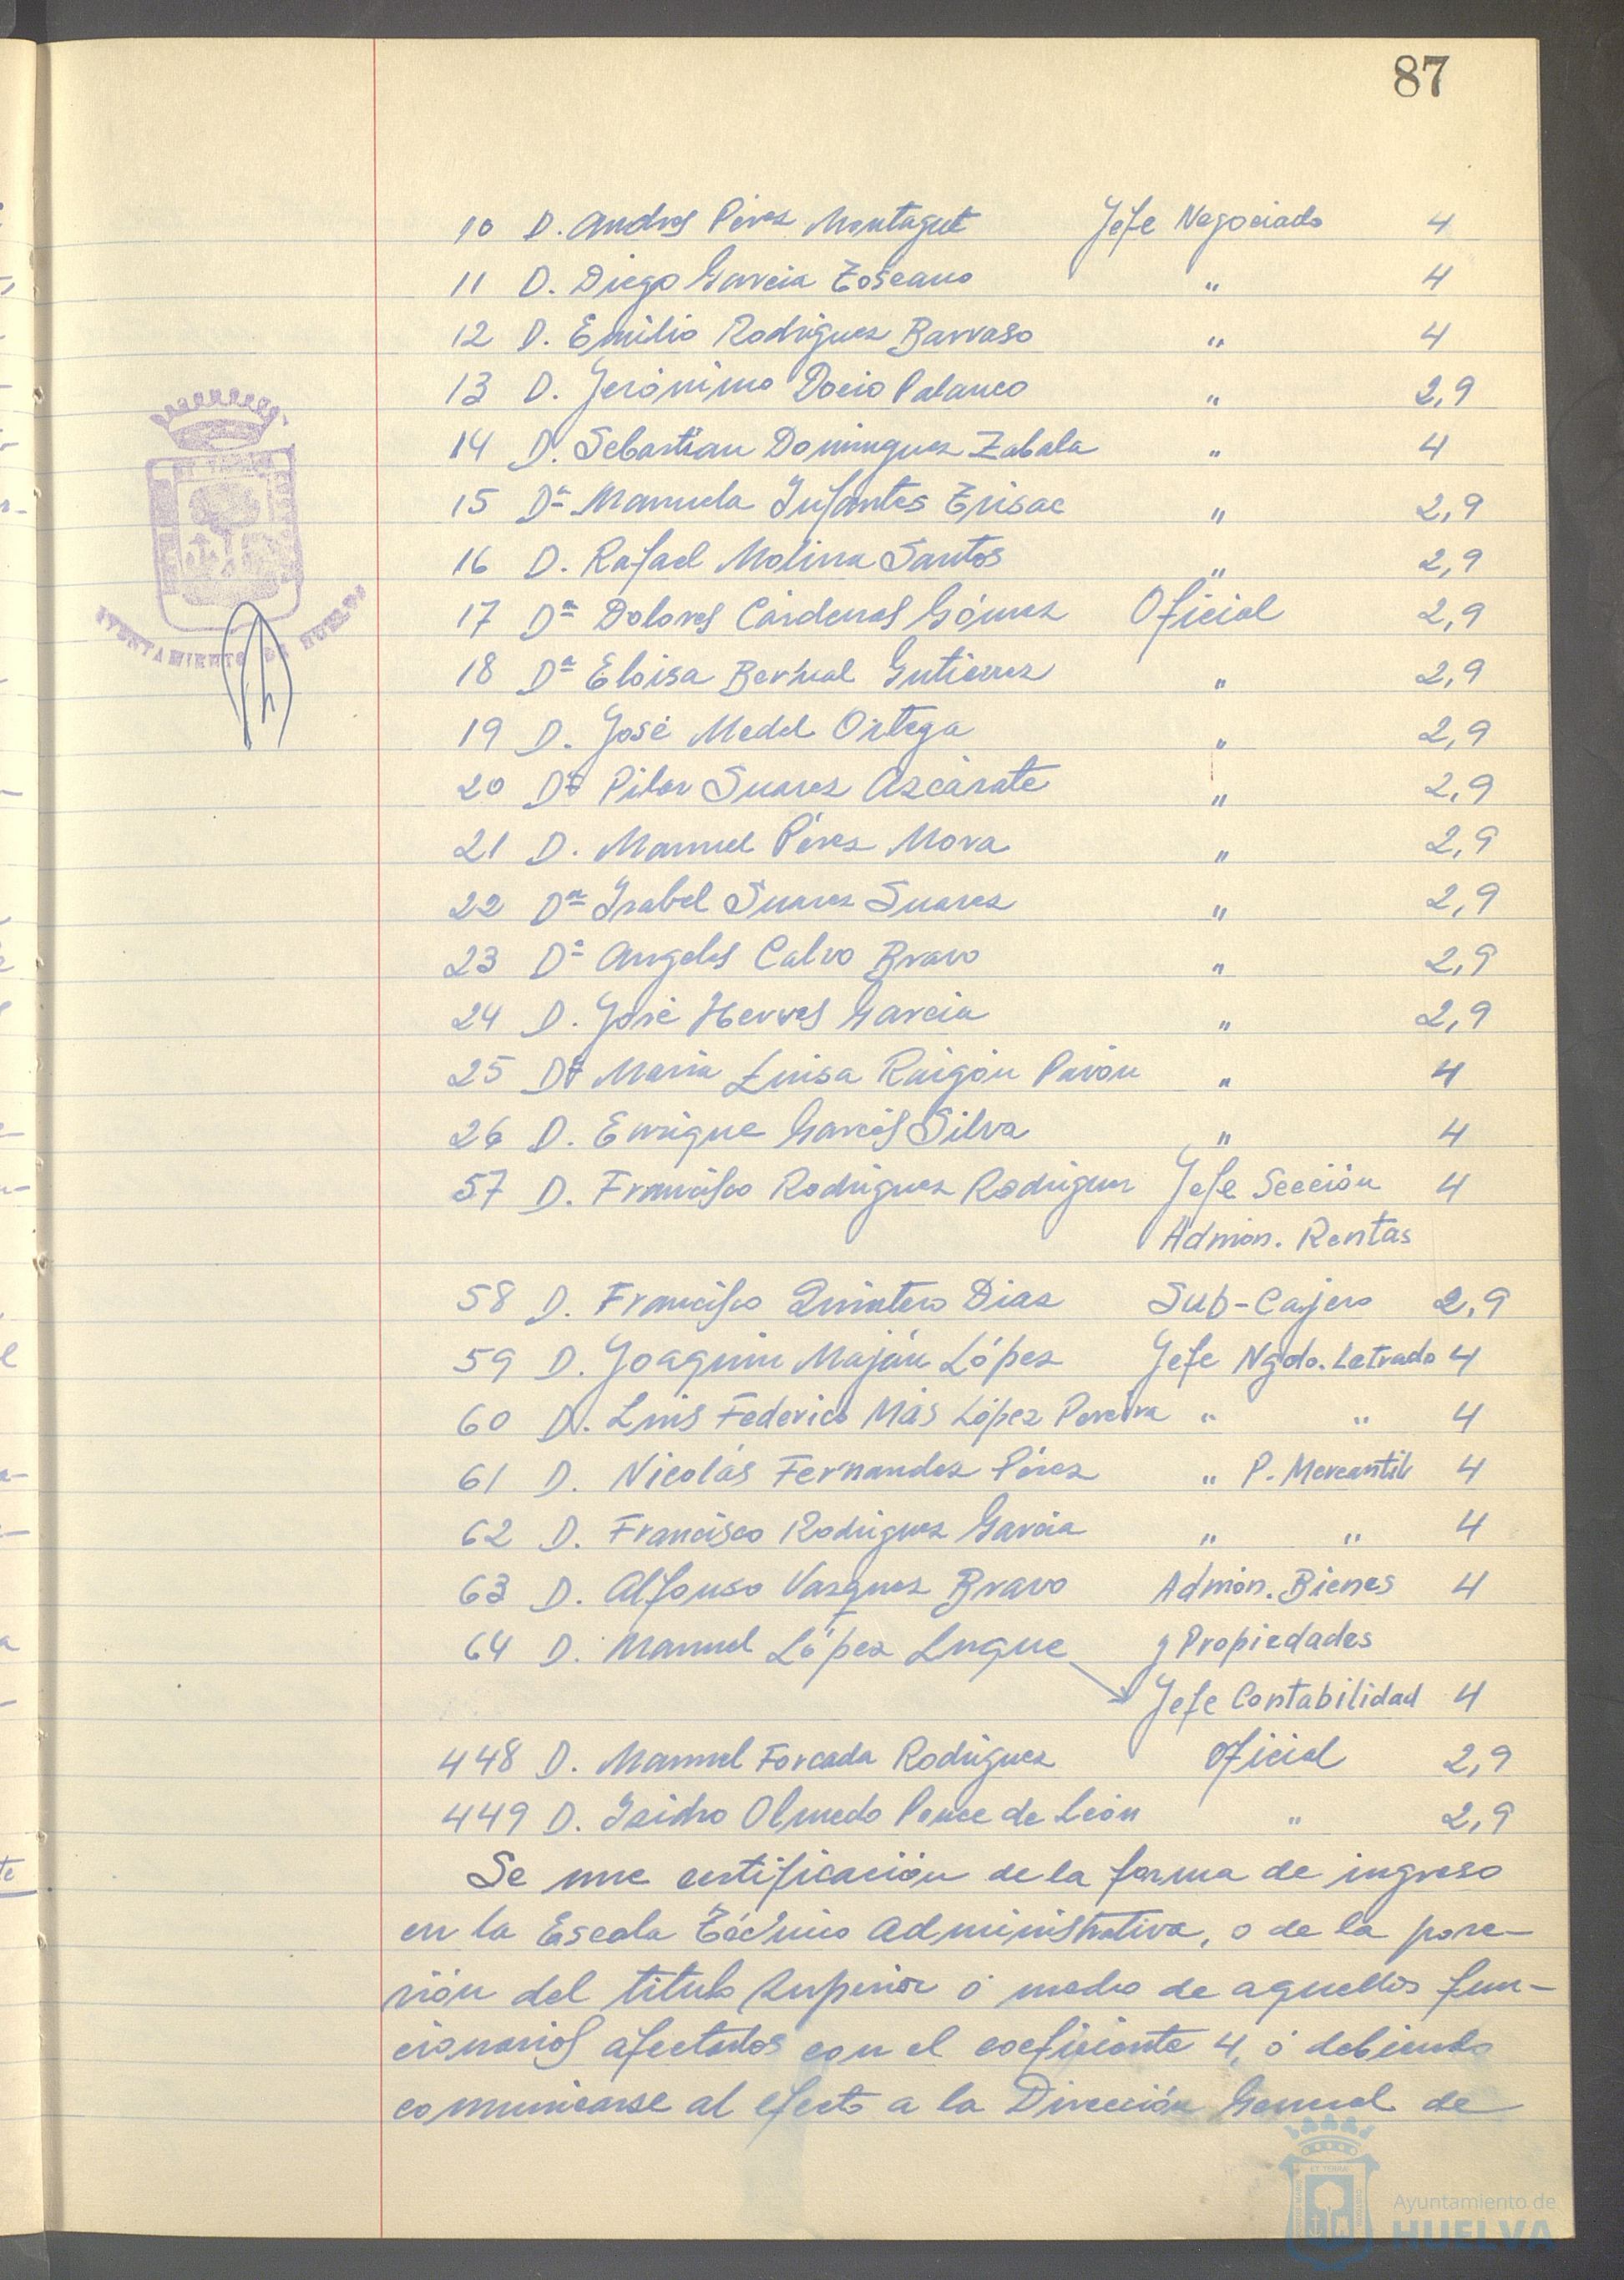 87
10 D. Andres Pérez Montagut Jefe Negociado 4
11 D. Diego Garcia Toscano " 4
12 D. Emilio Rodriguez Barraso " 4
13 D. Jerónimo Docio Palanco " 2,9
14 D. Sebastian Dominguez Zabala " 4
15 Dª Manuela Infantes Trisac " 2,9
16 D. Rafael Molina Santos " 2,9
17 Dª Dolores Cárdenas Gómez Oficial 2,9
18 Dª Eloisa Bernal Gutierrez " 2,9
19 D. José Medel Ortega " 2,9
20 Dª Pilar Suarez Azcárate " 2,9
21 D. Manuel Pérez Mora " 2,9
22 Dª Isabel Suarez Suarez " 2,9
23 Dª Angeles Calvo Bravo " 2,9
24 D. José Herves Garcia " 2,9
25 Dª Maria Luisa Raigón Pavón " 4
26 D. Enrique Garciá Silva " 4
57 D. Francisco Rodriguez Rodriguez Jefe Sección 4
Admón. Rentas
58 D. Francisco Quintero Diaz Sub-Cajero 2,9
59 D. Joaquin Maján López Jefe Ngdo. Letrado 4
60 D. Luis Federico Más López Pereira " " 4
61 D. Nicolás Fernandez Pérez " P. Mercantil 4
62 D. Francisco Rodriguez Garcia " " 4
63 D. Alfonso Vazquez Bravo Admón. Bienes 4
64 D. Manuel López Luque y Propiedades
Jefe Contabilidad 4
448 D. Manuel Forcada Rodriguez Oficial 2,9
449 D. Isidro Olmedo Ponce de León " 2,9
Se une certificación de la forma de ingreso
en la Escala Técnico Administrativa, o de la pose-
sión del titulo superior ó medio de aquellos fun-
cionarios afectados con el coeficiente 4, ó debiendo
comunicarse al efecto a la Dirección General de
AYUNTAMIENTO DE HUELVA
Ayuntamiento de
HUELVA